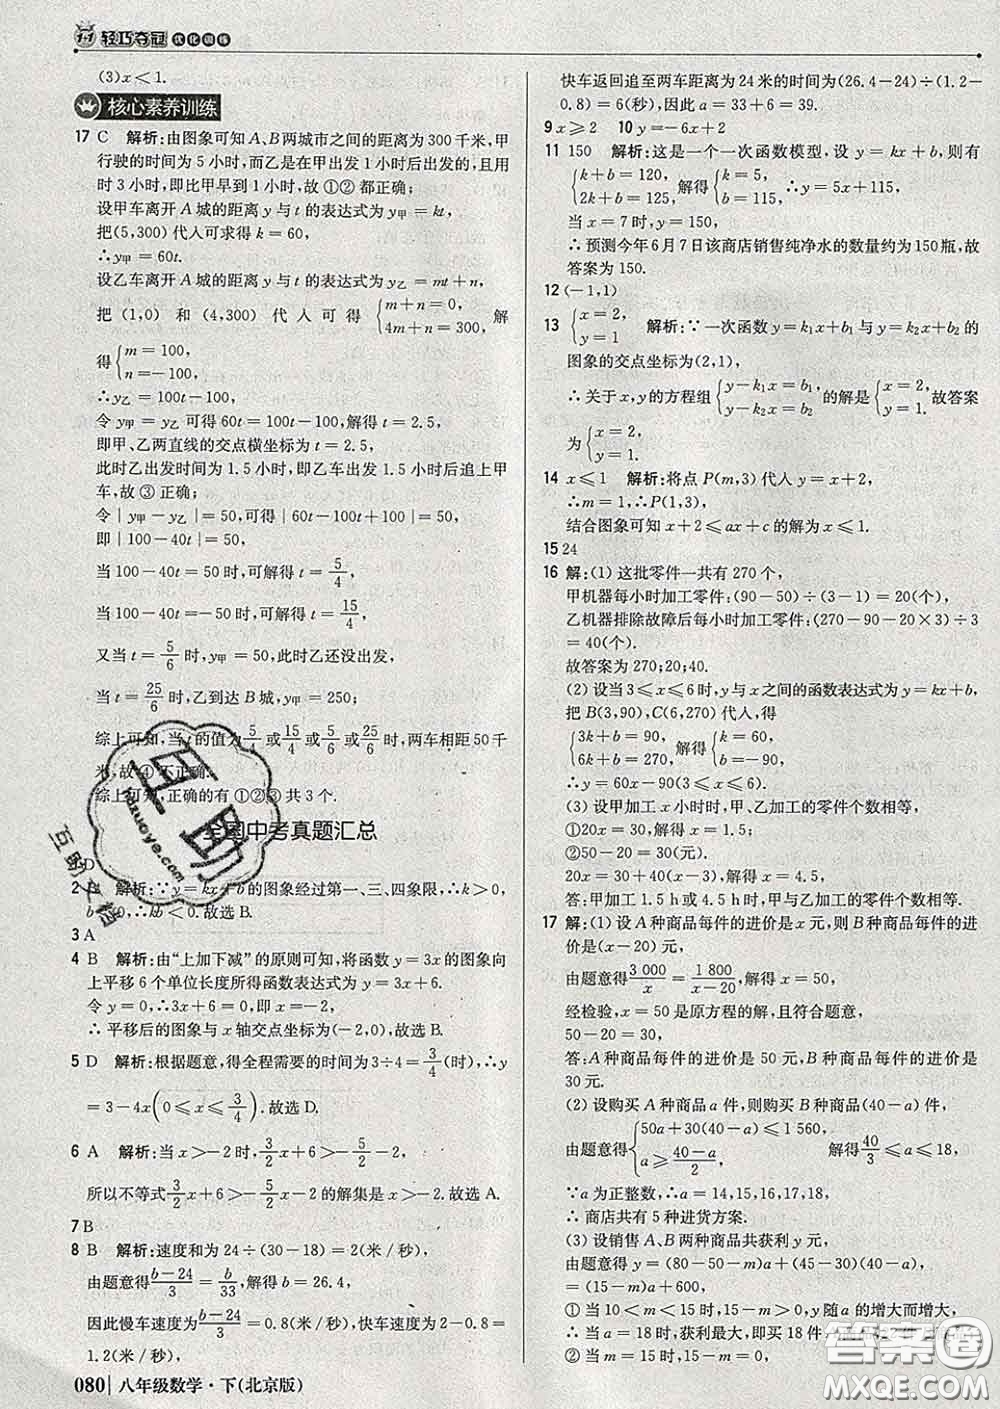 1+1 轻巧夺冠 优化训练
(3)x<1.
核心素养训练
17 C 解析:由图象可知A、B两城市之间的距离为300千米,甲
行驶的时间为5小时,而乙是在甲出发1小时后出发的,且用
时3小时,即比甲早到1小时,故①②都正确;
设甲车离开A城的距离y与t的表达式为y甲=kt,
把(5,300)代入可求得k=60,
∴y甲=60t.
设乙车离开A城的距离y与t的表达式为y乙=mt+n,
把(1,0)和(4,300)代入可得{m+n=0, 4m+n=300, 解
得{m=100, n=-100,
∴y乙=100t-100,
令y甲=y乙可得60t=100t-100,解得t=2.5,
即甲、乙两直线的交点横坐标为t=2.5,
此时乙出发时间为1.5小时,即乙车出发1.5小时后追上甲
车,故③正确;
令|y甲-y乙|=50,可得|60t-100t+100|=50,
即|100-40t|=50,
当100-40t=50时,可解得t=5/4,
当100-40t=-50时,可解得t=15/4,
又当t=5/6时,y甲=50,此时乙还没出发,
当t=25/6时,乙到达B城,y甲=250;
综上可知,当t的值为5/4或15/4或5/6或25/6时,两车相距50千
米,故④不正确.
综上可知,正确的有①②③共3个.
全国中考真题汇总
1 D
2 B 解析:∵y=kx+b的图象经过第一、三、四象限,∴k>0,
b<0,∴kb<0.故选B.
3 A
4 B 解析:由“上加下减”的原则可知,将函数y=3x的图象向
上平移6个单位长度所得函数表达式为y=3x+6.
令y=0,∴3x+6=0,即x=-2,
∴平移后的图象与x轴交点坐标为(-2,0),故选B.
5 D 解析:根据题意,得全程需要的时间为3÷4=3/4(时),∴y
=3-4x(0≤x≤3/4).故选D.
6 A 解析:当x>-2时,3/2x+6>-5/2x-2,
所以不等式3/2x+6>-5/2x-2的解集是x>-2.故选A.
7 B
8 B 解析:速度和为24÷(30-18)=2(米/秒),
由题意得(b-24)/3=b/33,解得b=26.4,
因此慢车速度为(b-24)/3=0.8(米/秒),快车速度为2-0.8=
1.2(米/秒),
快车返回追至两车距离为24米的时间为(26.4-24)÷(1.2-
0.8)=6(秒),因此a=33+6=39.
9 x≥2 10 y=-6x+2
11 150 解析:这是一个一次函数模型,设y=kx+b,则有
{k+b=120, 2k+b=125, 解得{k=5, b=115, ∴y=5x+115,
当x=7时,y=150,
∴预测今年6月7日该商店销售纯净水的数量约为150瓶,故
答案为150.
12 (-1,1)
13 {x=2, y=1 解析:∵一次函数y=k₁x+b₁与y=k₂x+b₂的
图象的交点坐标为(2,1),
∴关于x,y的方程组{y-k₁x=b₁, y-k₂x=b₂的解是{x=2, y=1.故答案
为{x=2, y=1.
14 x≤1 解析:将点P(m,3)代入y=x+2,
∴m=1,∴P(1,3),
结合图象可知x+2≤ax+c的解为x≤1.
15 24
16 解:(1)这批零件一共有270个,
甲机器每小时加工零件:(90-50)÷(3-1)=20(个),
乙机器排除故障后每小时加工零件:(270-90-20×3)÷3
=40(个).
故答案为270;20;40.
(2)设当3≤x≤6时,y与x之间的函数表达式为y=kx+b,
把B(3,90),C(6,270)代入,得
{3k+b=90, 6k+b=270, 解得{k=60, b=-90,
∴y=60x-90(3≤x≤6).
(3)设甲加工x小时时,甲、乙加工的零件个数相等,
①20x=30,解得x=1.5;
②50-20=30(元).
20x=30+40(x-3),解得x=4.5,
答:甲加工1.5 h或4.5 h时,甲与乙加工的零件个数相等.
17 解:(1)设A种商品每件的进价是x元,则B种商品每件的进
价是(x-20)元,
由题意得3 000/x=1 800/(x-20),解得x=50,
经检验,x=50是原方程的解,且符合题意,
50-20=30,
答:A种商品每件的进价是50元,B种商品每件的进价是
30元.
(2)设购买A种商品a件,则购买B种商品(40-a)件,
由题意得{50a+30(40-a)≤1 560, a≥(40-a)/2, 解得40/3≤a≤18,
∵a为正整数,∴a=14,15,16,17,18,
∴商店共有5种进货方案.
(3)设销售A、B两种商品共获利y元,
由题意得y=(80-50-m)a+(45-30)(40-a),
=(15-m)a+600,
①当10<m<15时,15-m>0,y随a的增大而增大,
∴当a=18时,获利最大,即买18件
②当m=15时,15-m=0,
080 八年级数学·下(北京版)
互助
huzuoye.com
互助文档
答案圈
MXQE.COM